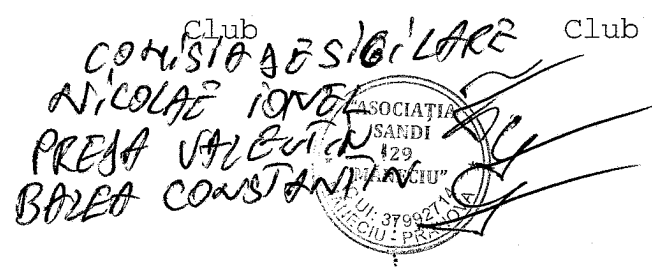 Club Club
COMISIA DE SIGILARE
NICOLAE IONEL
PREDA VALENTIN
BALEA CONSTANTIN
"ASOCIAȚIA
SANDI
129
MĂNECIU"
CUI: 37992714
MĂNECIU - PRAHOVA